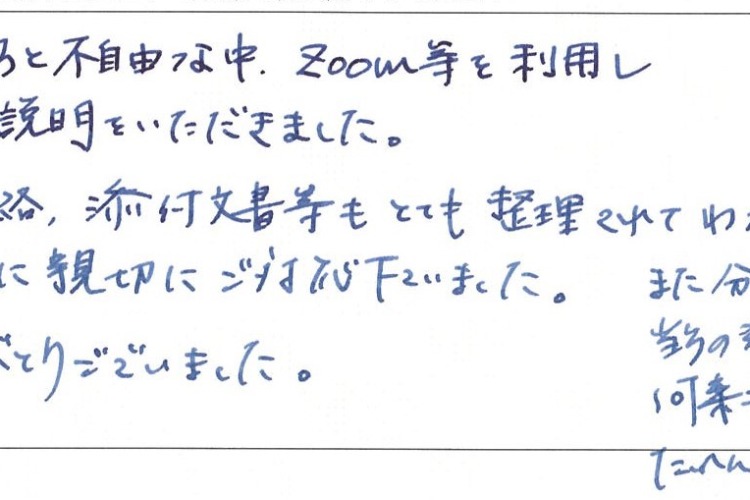 ろと不自由な中、Zoom等を利用し
説明をいただきました。
絡、添付文書等もとても整理されてわか
に親切にご対応下さいました。
とうございました。
また分
当方の
何卒